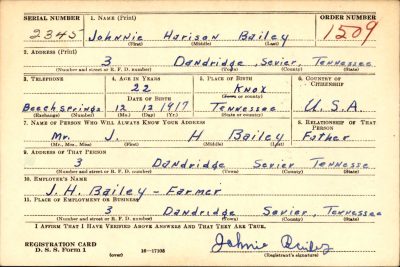 SERIAL NUMBER 1. NAME (Print) ORDER NUMBER
2345 Johnnie Harison Bailey 1509
(First) (Middle) (Last)
2. ADDRESS (Print)
3 Dandridge, Sevier, Tennessee
(Number and street or R. F. D. number) (Town) (County) (State)
3. TELEPHONE 4. AGE IN YEARS 5. PLACE OF BIRTH 6. COUNTRY OF CITIZENSHIP
22 Knox
DATE OF BIRTH (Town or county)
Beech Springs 12 12 1917 Tennessee U.S.A
(Exchange) (Number) (Mo.) (Day) (Yr.) (State or country)
7. NAME OF PERSON WHO WILL ALWAYS KNOW YOUR ADDRESS 8. RELATIONSHIP OF THAT PERSON
Mr. J. H Bailey Father
(Mr., Mrs., Miss) (First) (Middle) (Last)
9. ADDRESS OF THAT PERSON
3 Dandridge Sevier Tennessee
(Number and street or R. F. D. number) (Town) (County) (State)
10. EMPLOYER'S NAME
J. H. Bailey - Farmer
11. PLACE OF EMPLOYMENT OR BUSINESS
3 Dandridge Sevier, Tennessee
(Number and street or R. F. D. number) (Town) (County) (State)
I AFFIRM THAT I HAVE VERIFIED ABOVE ANSWERS AND THAT THEY ARE TRUE.
REGISTRATION CARD Johnie Bailey
D. S. S. Form 1 16-17105 (Registrant's signature)
(over)